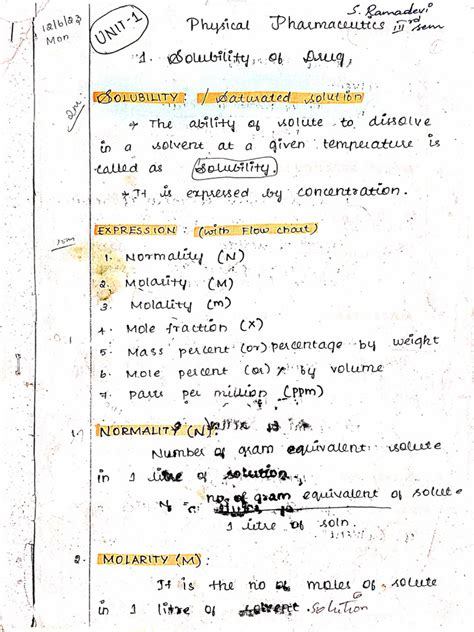 S. Ramadevi
12/6/23
Mon
UNIT-1
Physical Pharmaceutics IIIrd sem
1. Solubility of Drug,
2m
SOLUBILITY : / Saturated solution
→ The ability of solute to dissolve
in a solvent at a given temperature is
called as Solubility.
→ It is expressed by concentration.
10m
EXPRESSION : (with Flow chart)
1. Normality (N)
2. Molarity (M)
3. Molality (m)
4. Mole fraction (X)
5. Mass percent (or) percentage by weight
6. Mole percent (or) % by volume
7. parts per million (ppm)
1. NORMALITY (N):
Number of gram equivalent solute
in 1 litre of solution.
N = no. of gram equivalent of solute
1 litre of soln.
2. MOLARITY (M):
It is the no of moles of solute
in 1 litre of solvent solution